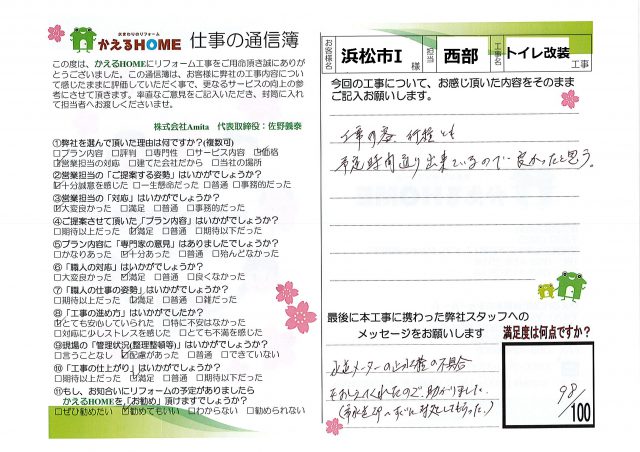 水まわりのリフォーム
かえるHOME 仕事の通信簿
この度は、かえるHOMEにリフォーム工事をご用命頂き誠にありが
とうございました。この通信簿は、お客様に弊社の工事内容につい
て感じたままに評価していただく事で、更なるサービスの向上の参
考にさせて頂きます。率直なご意見をご記入いただき、封筒に入れ
て担当者へお渡しくださいませ。
株式会社Amita 代表取締役：佐野義泰
①弊社を選んで頂いた理由は何ですか?(複数可)
□プラン内容 □評判 □専門性 □サービス内容 ☑価格
☑営業担当の対応 □建てた会社だから □当社の場所
②営業担当の「ご提案する姿勢」はいかがでしょうか?
☑十分誠意を感じた □一生懸命だった □普通 □事務的だった
③営業担当の「対応」はいかがでしょうか?
☑大変良かった □満足 □普通 □事務的だった
④ご提案させて頂いた「プラン内容」はいかがでしょうか?
□期待以上だった ☑満足 □普通 □期待以下だった
⑤プラン内容に「専門家の意見」はありましたでしょうか?
□かなりあった ☑十分あった □普通 □殆んどなかった
⑥「職人の対応」はいかがでしょうか?
□大変良かった ☑満足 □普通 □良くなかった
⑦「職人の仕事の姿勢」はいかがでしょうか?
□期待以上だった ☑満足 □普通 □雑だった
⑧「工事の進め方」はいかがでしたか?
☑とても安心していられた □特に不安はなかった
□対応に少しストレスを感じた □とても不満を感じた
⑨現場の「管理状況(整理整頓等)」はいかがでしょうか?
□言うことなし ☑配慮があった □普通 □できていない
⑩「工事の仕上がり」はいかがでしょうか?
□期待以上だった ☑満足 □普通 □期待以下だった
⑪もし、お知合いにリフォームの予定がありましたら
かえるHOMEを「お勧め」頂けますでしょうか?
□ぜひ勧めたい ☑勧めてもいい □わからない □勧められない
お客様名 浜松市I 様 担当 西部 工事名 トイレ改装 工事
今回の工事について、お感じ頂いた内容をそのまま
ご記入お願いします。
工事の内容、行程とも
予定時間通り出来ているので良かったと思う。
かえるHOME
最後に本工事に携わった弊社スタッフへの
メッセージをお願いします
満足度は何点ですか?
水道メーターの止水栓の不具合
をおしえてくれたので、助かりました。
98/100